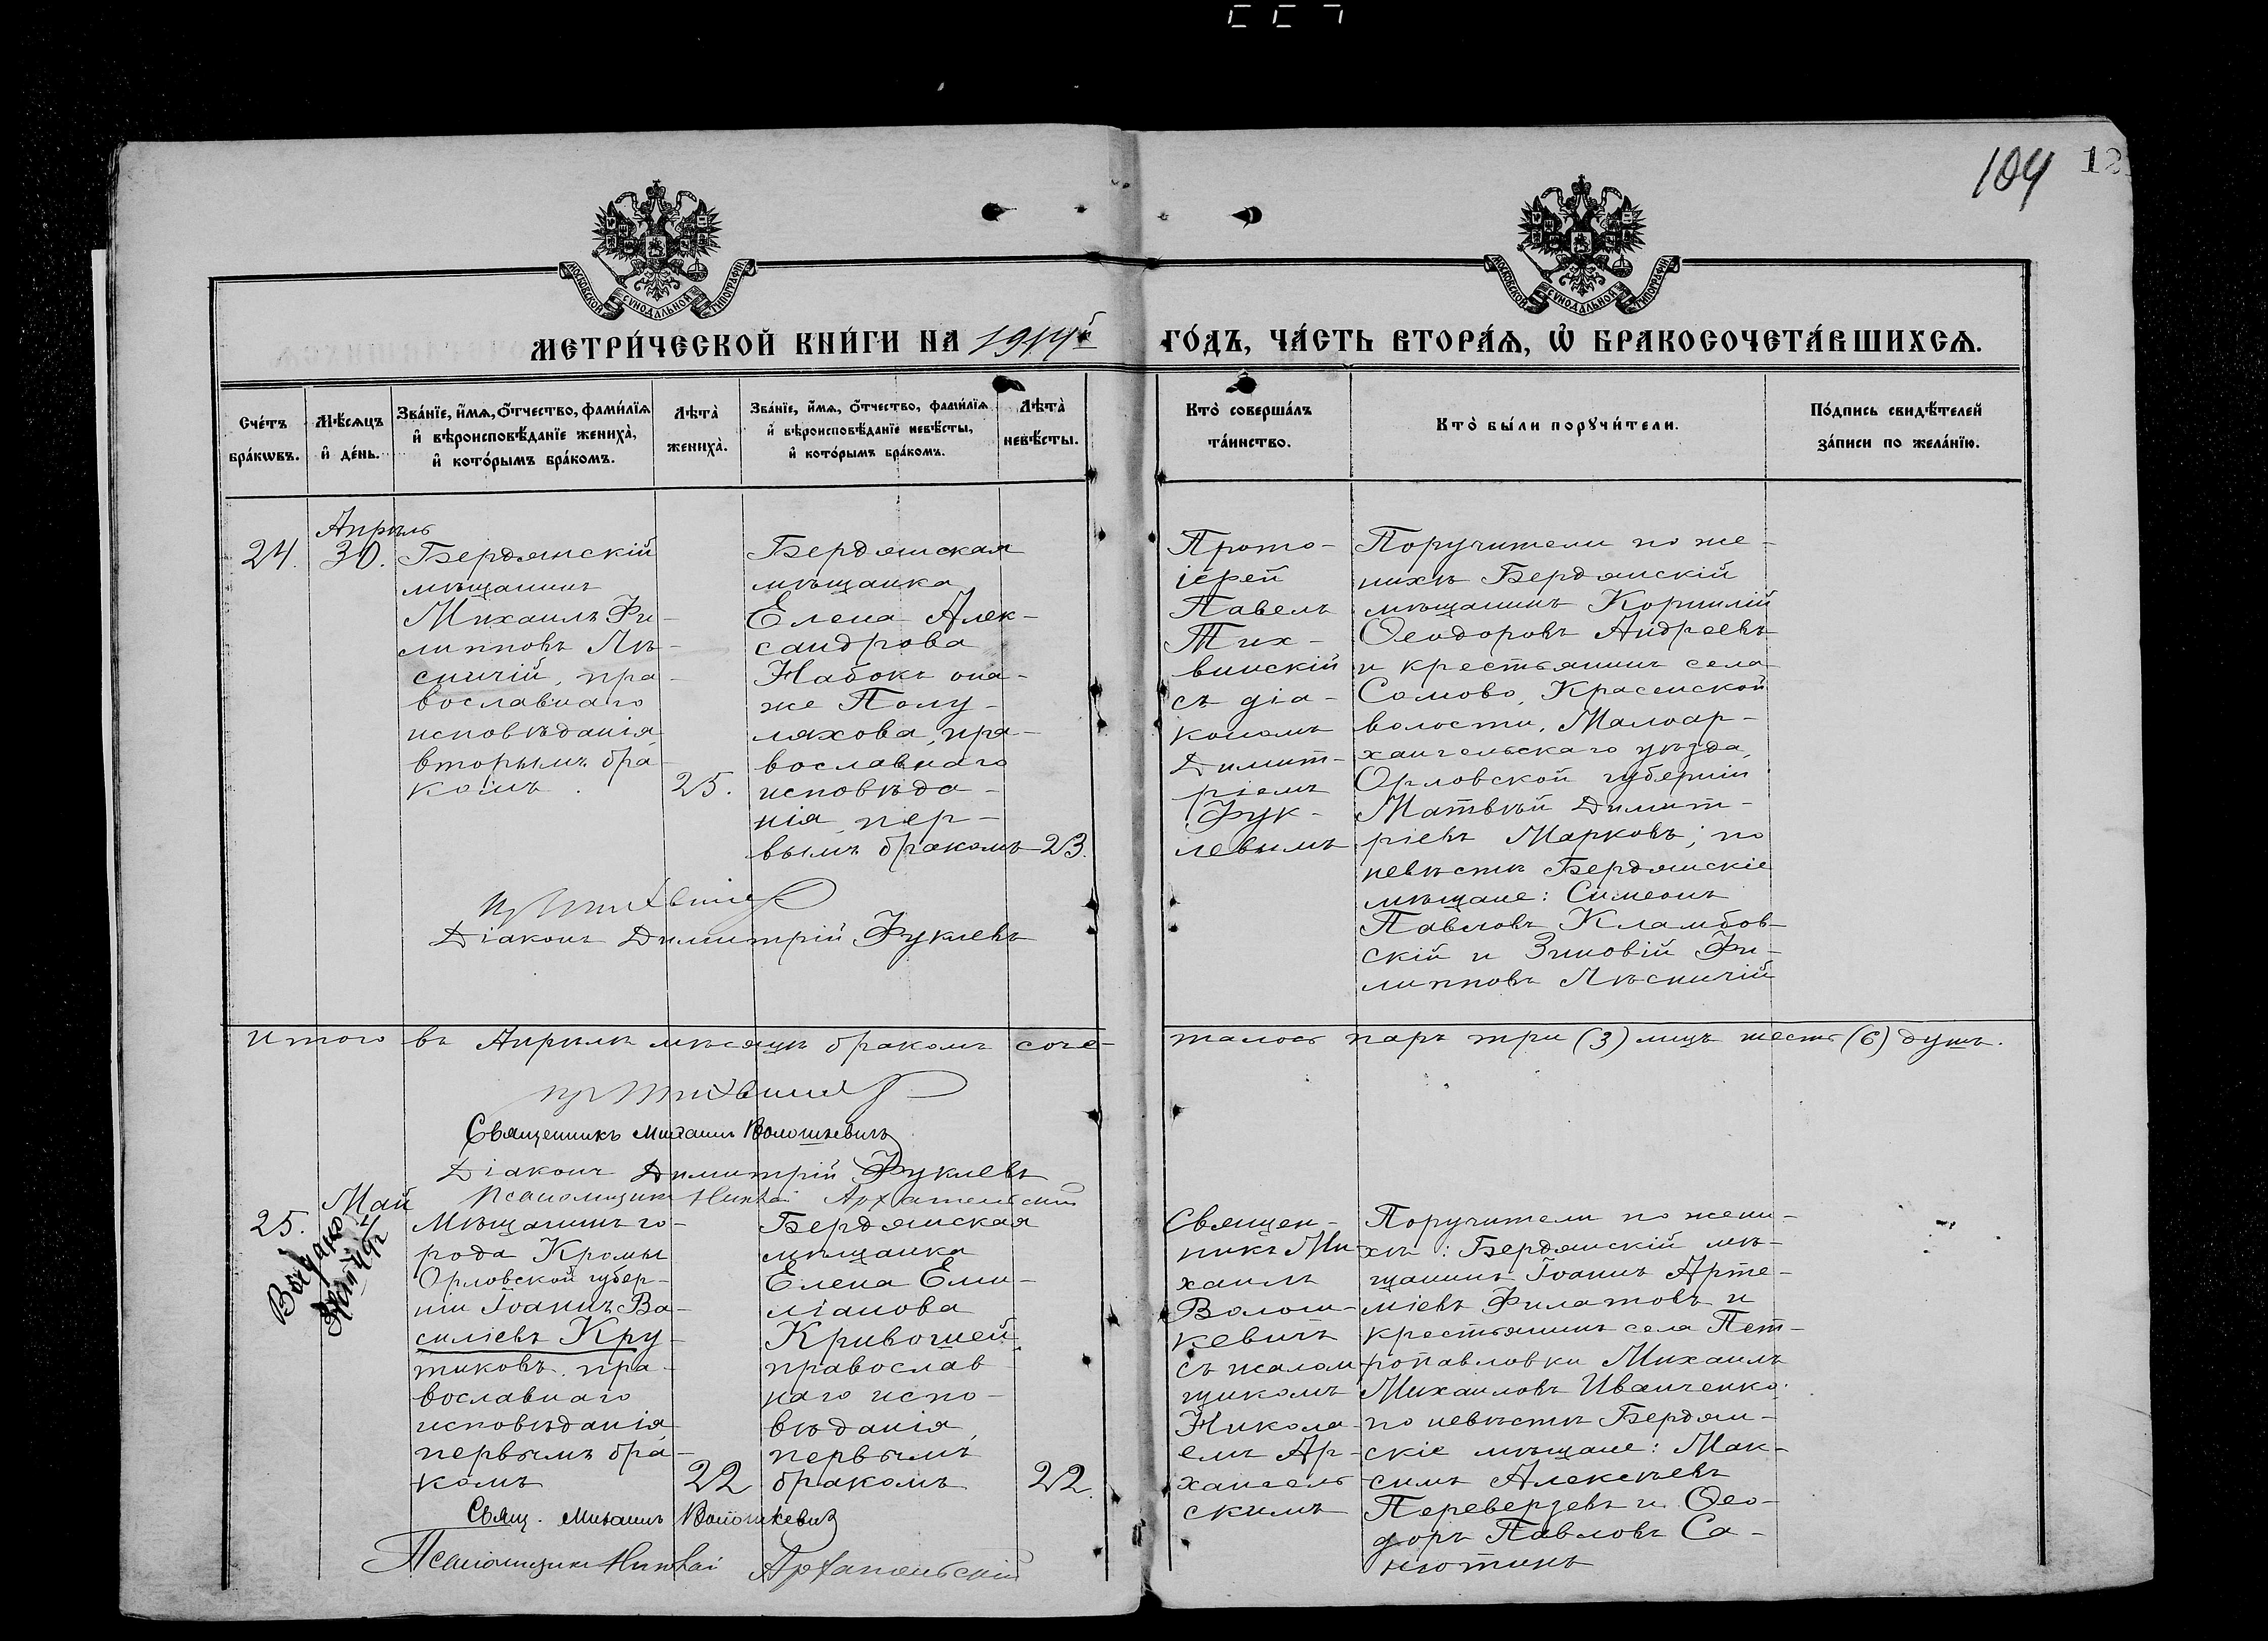 104 12
МОСКОВСКОЙ СУНОДАЛЬНОЙ ТИПОГРАФІИ
МОСКОВСКОЙ СУНОДАЛЬНОЙ ТИПОГРАФІИ
МЕТРИ́ЧЕСКОЙ КНИ́ГИ НА 1914й
ГО́ДЪ, ЧА́СТЬ ВТОРА́Ѧ, Ѡ҆ БРАКОСОЧЕТА́ВШИХСѦ.
Сче́тъ бра́кѡвъ.
Мѣ́сѧцъ и҆ де́нь.
Зва́нїе, и҆́мѧ, о҆́тчество, фами́лїѧ
и҆ вѣроисповѣ́данїе жениха̀,
и҆ кото́рымъ бра́комъ.
Лѣта̀ жениха̀.
Зва́нїе, и҆́мѧ, о҆́тчество, фами́лїѧ
и҆ вѣроисповѣ́данїе невѣ́сты,
и҆ кото́рымъ бра́комъ.
Лѣта̀ невѣ́сты.
Кто̀ соверша́лъ
та́инство.
Кто̀ бы́ли порꙋчи́тели.
По́дпись свидѣ́телей
за́писи по жела́нїю.
24.
Апрѣль
30.
Бердянскій
мѣщанинъ
Михаилъ Фи-
липповъ Лѣ-
сничій, пра-
вославнаго
исповѣданія,
вторымъ бра-
комъ.
25.
Бердянская
мѣщанка
Елена Алек-
сандрова
Набокъ она-
же Полу-
ляхова, пра-
вославнаго
исповѣда-
нія, пер-
вымъ бракомъ
23.
Діаконъ Димитрій Фуклевъ
Прото-
іерей
Павелъ
Тих-
винскій
съ діа-
кономъ
Димит-
ріемъ
Фук-
левымъ
Поручители по же-
нихѣ Бердянскій
мѣщанинъ Корнилій
Ѳеодоровъ Андреевъ
и крестьянинъ села
Сомово, Красенской
волости, Малоар-
хангельскаго уѣзда,
Орловской губерніи
Матвѣй Димит-
ріевъ Марковъ; по
невѣстѣ Бердянскіе
мѣщане: Симеонъ
Павловъ Кламбов-
скій и Зиновій Фи-
липповъ Лѣсничій
Итого въ Апрѣлѣ мѣсяцѣ бракомъ соче-
талось паръ три (3) лицъ шесть (6) душъ.
Священникъ Михаилъ Волошкевичъ
Діаконъ Димитрій Фуклевъ
Псаломщикъ Николай Архангельскій
25.
Май
Мѣщанинъ го-
рода Кромы
Орловской губер-
ніи Іоаннъ Ва-
силіевъ Кру-
тиковъ, пра-
вославнаго
исповѣданія
первымъ бра-
комъ
22
Бердянская
мѣщанка
Елена Еми-
ліанова
Кривошей,
православ-
наго испо-
вѣданія,
первымъ
бракомъ
22.
Свящ. Михаилъ Волошкевичъ
Псаломщикъ Николай Архангельскій
Священ-
никъ Ми-
хаилъ
Волош-
кевичъ
съ псалом-
щикомъ
Никола-
емъ Ар-
хангель-
скимъ
Поручители по жени-
хѣ: Бердянскій мѣ-
щанинъ Іоаннъ Арте-
міевъ Филатовъ и
крестьянинъ села Пет-
ропавловки Михаилъ
Михаиловъ Иванченко;
по невѣстѣ Бердян-
скіе мѣщане: Мак-
симъ Алексѣевъ
Переверзевъ и Ѳео-
доръ Павловъ Са-
нютинъ